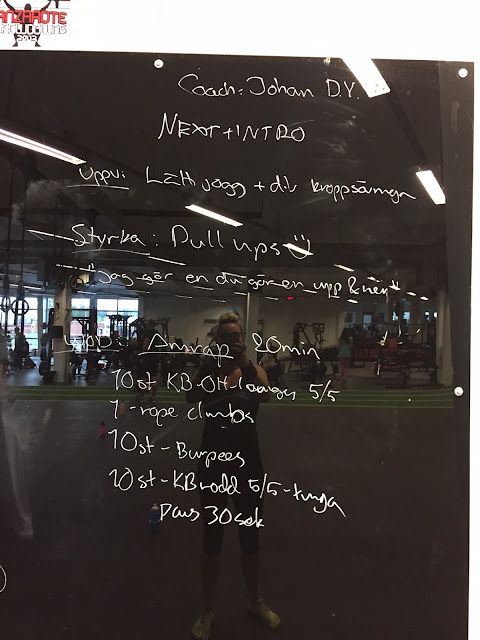 ANZAROTE
THROWDOWNS
2013
Coach: Johan D.Y.
NEXT + INTRO
Uppv: Lätt jogg + div kroppsövningar
Styrka: Pull ups
"Jag gör en du gör en upp & ner"
WOD: Amrap 20min
10st KB-OH-lounges 5/5
1 - rope climbs
10st - Burpees
10st - KB rodd 5/5 - tunga
Paus 30sek